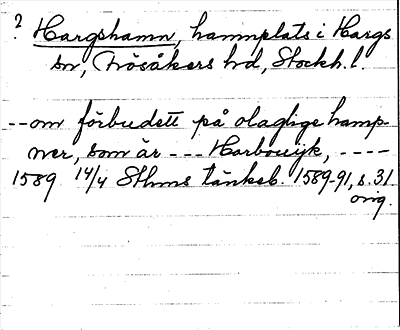 ? Hargshamn, hamnplats i Hargs
sn, Frösåkers hd, Stockh. l.
-- om förbudett på olaglige hamp-
ner, som är --- Harbouijk, ----
1589 14/4 Sthms tänkeb. 1589-91, s. 31
orig.